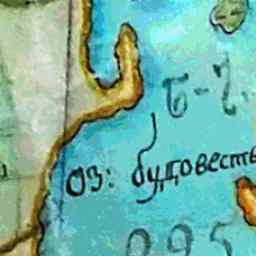 Б-2.
ОЗ: будовесть
095